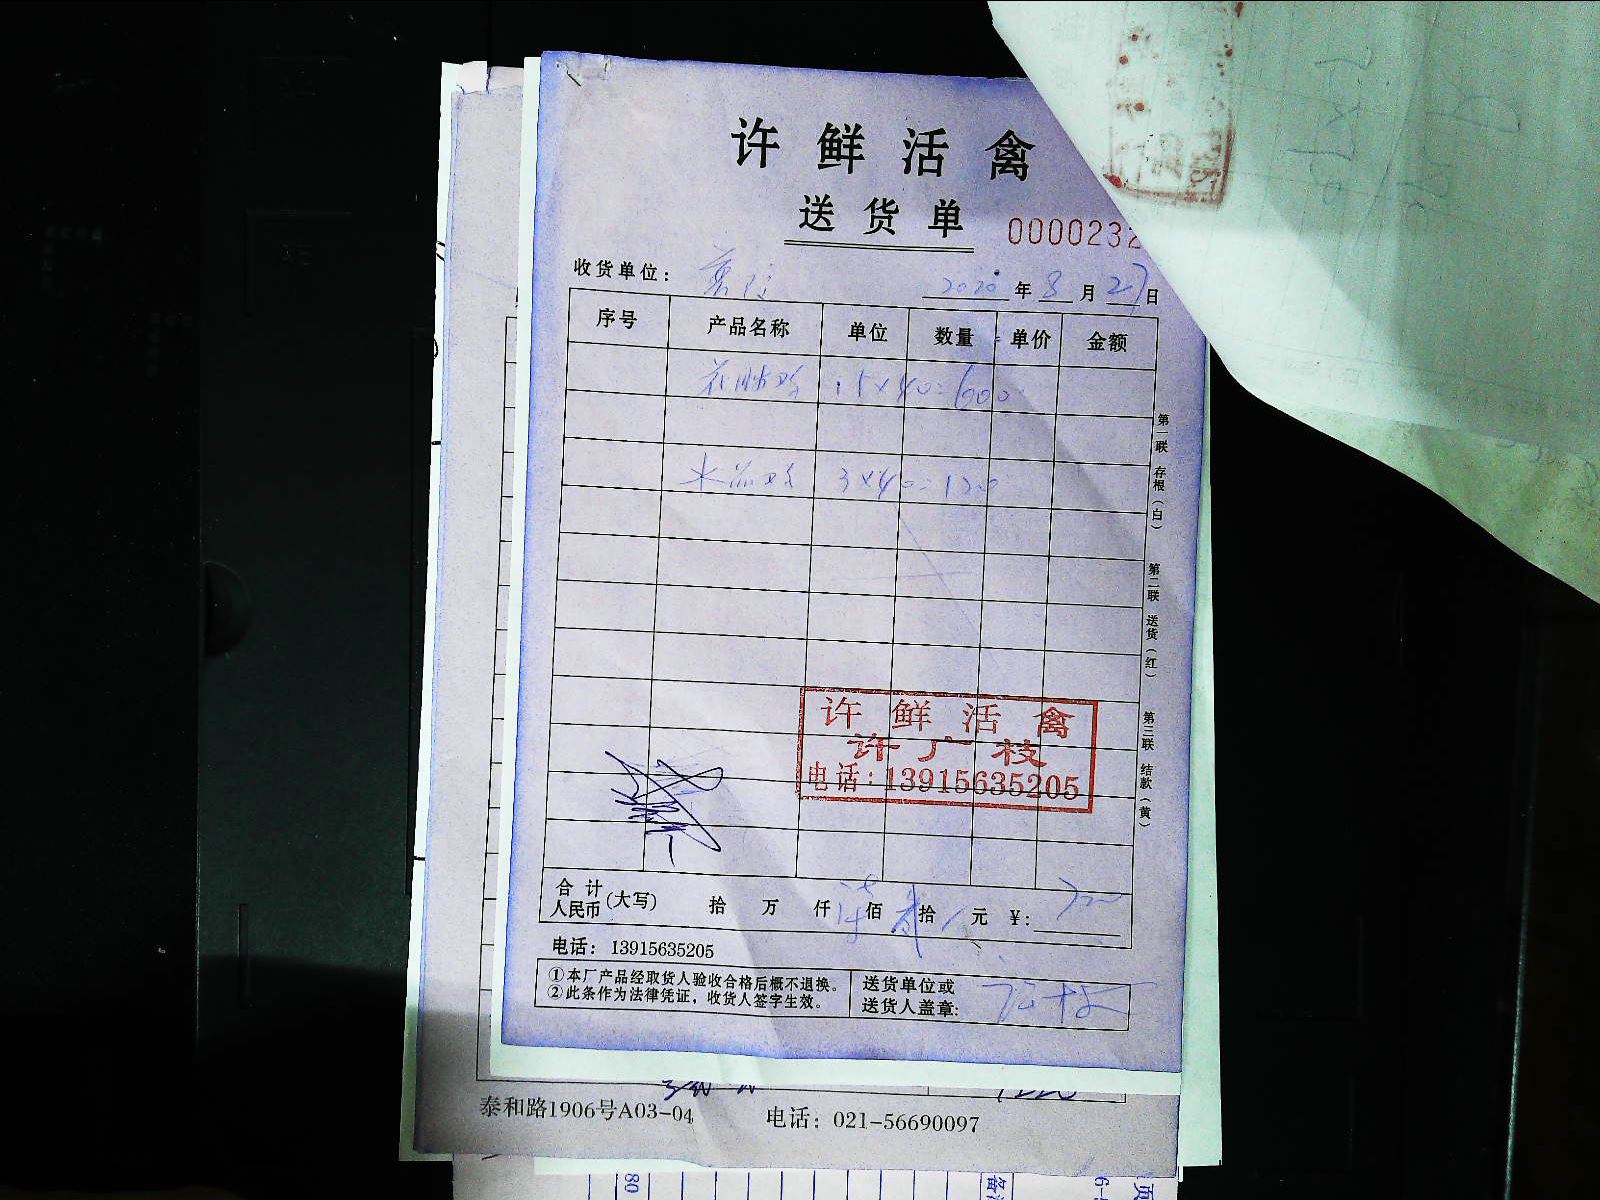 许鲜活禽
送货单
000023
收货单位:
2020年8月27日
序号 产品名称 单位 数量 单价 金额
15×40=600
3×40=120
第一联 存根(白)
第二联 送货(红)
第三联 结款(黄)
许鲜活禽
许广枝
电话:13915635205
合计人民币(大写) 拾 万 仟 柒佰 贰拾 元 ¥: 720
电话: 13915635205
①本厂产品经取货人验收合格后概不退换。
②此条作为法律凭证,收货人签字生效。
送货单位或
送货人盖章:
泰和路1906号A03-04 电话: 021-56690097
80